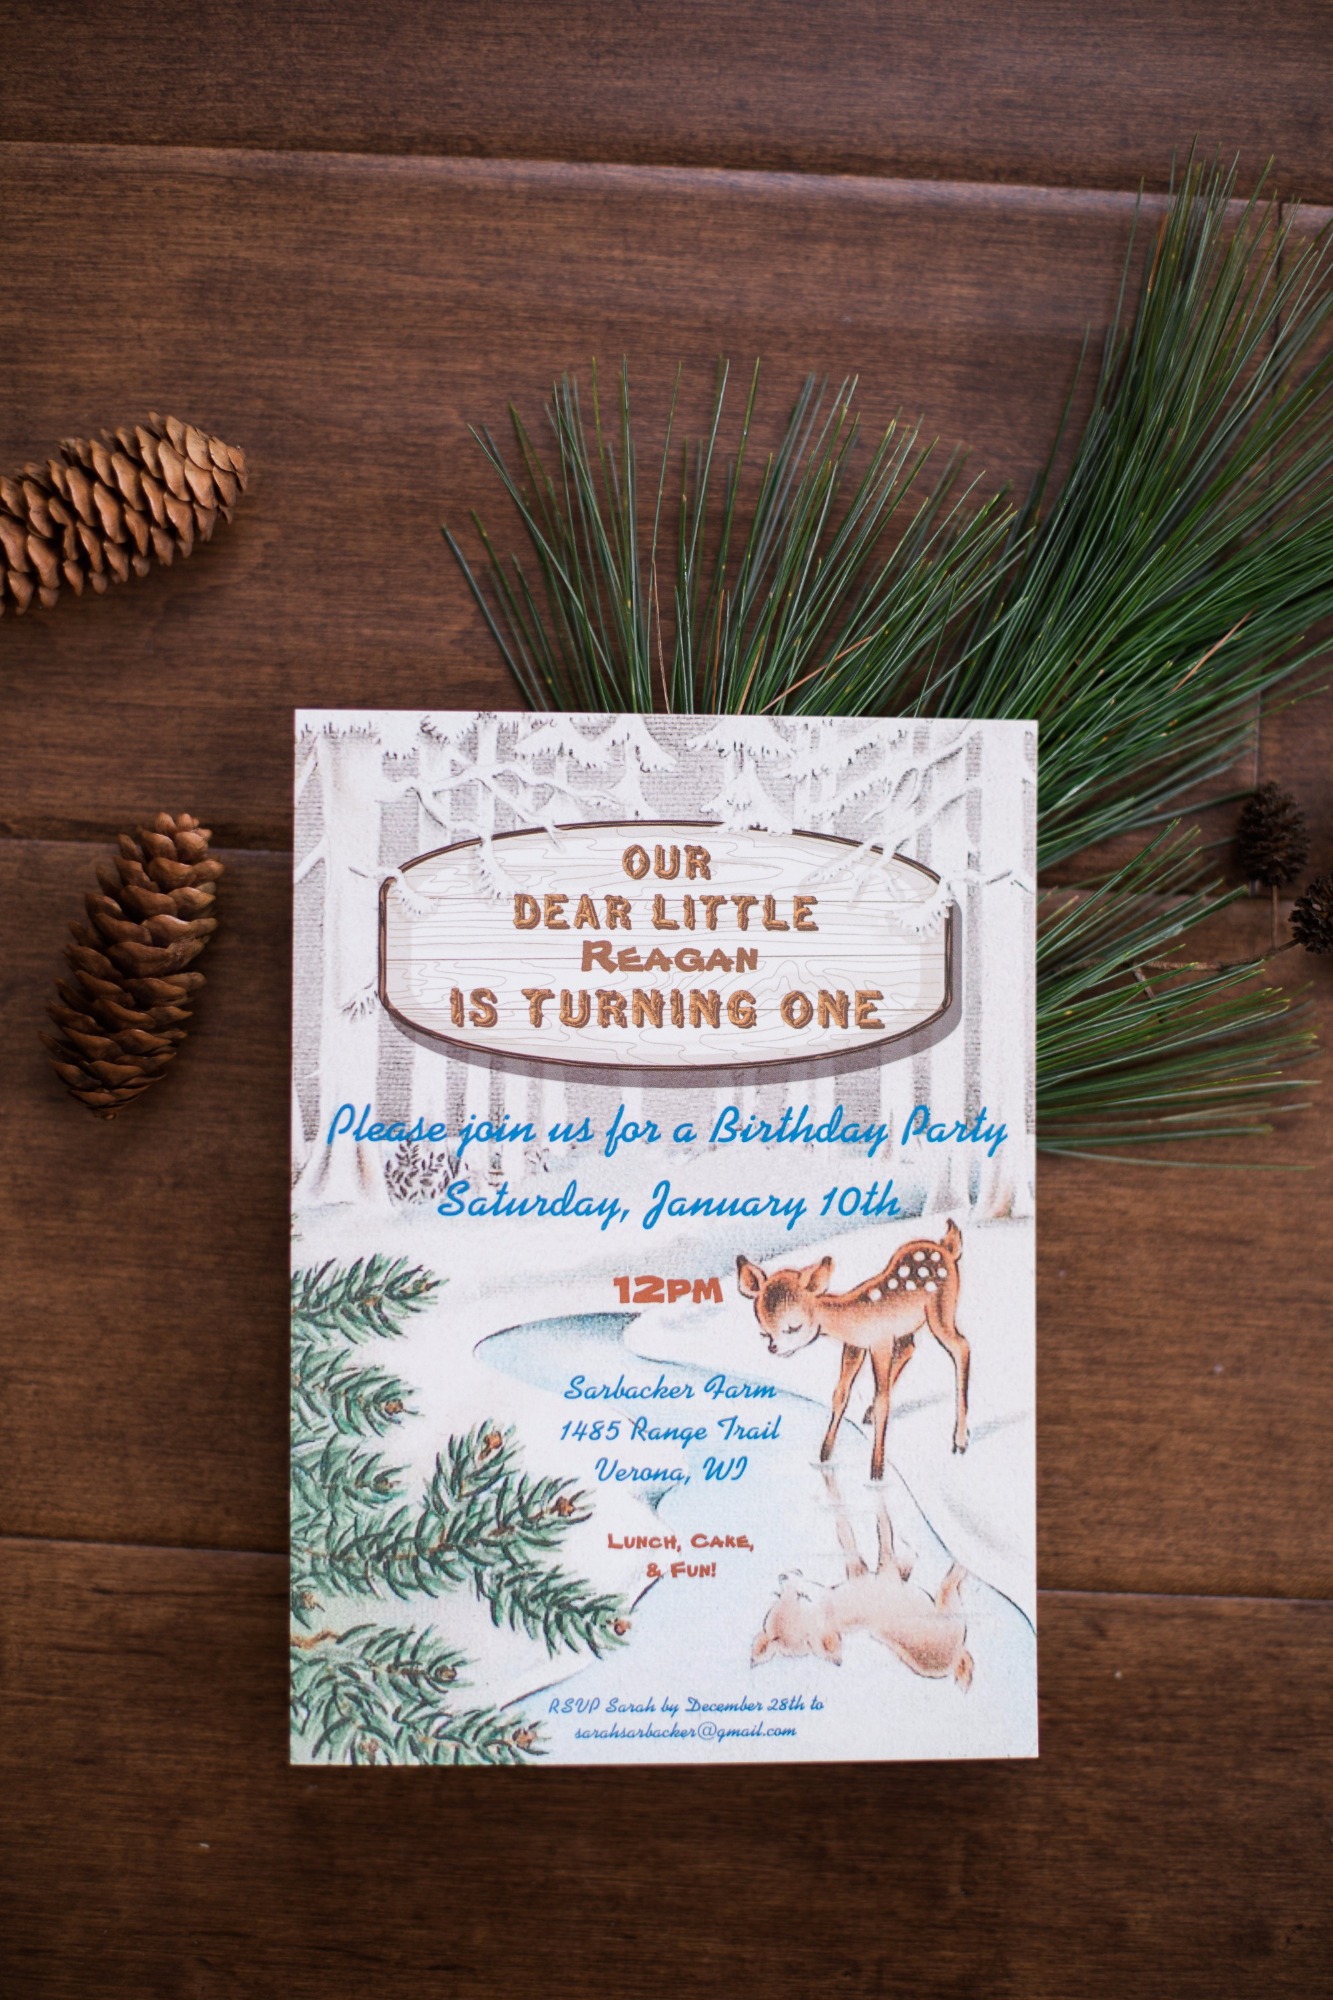 OUR
DEAR LITTLE
REAGAN
IS TURNING ONE
Please join us for a Birthday Party
Saturday, January 10th
12PM
Sarbacker Farm
1485 Range Trail
Verona, WI
LUNCH, CAKE,
& FUN!
RSVP Sarah by December 28th to
sarahsarbacker@gmail.com